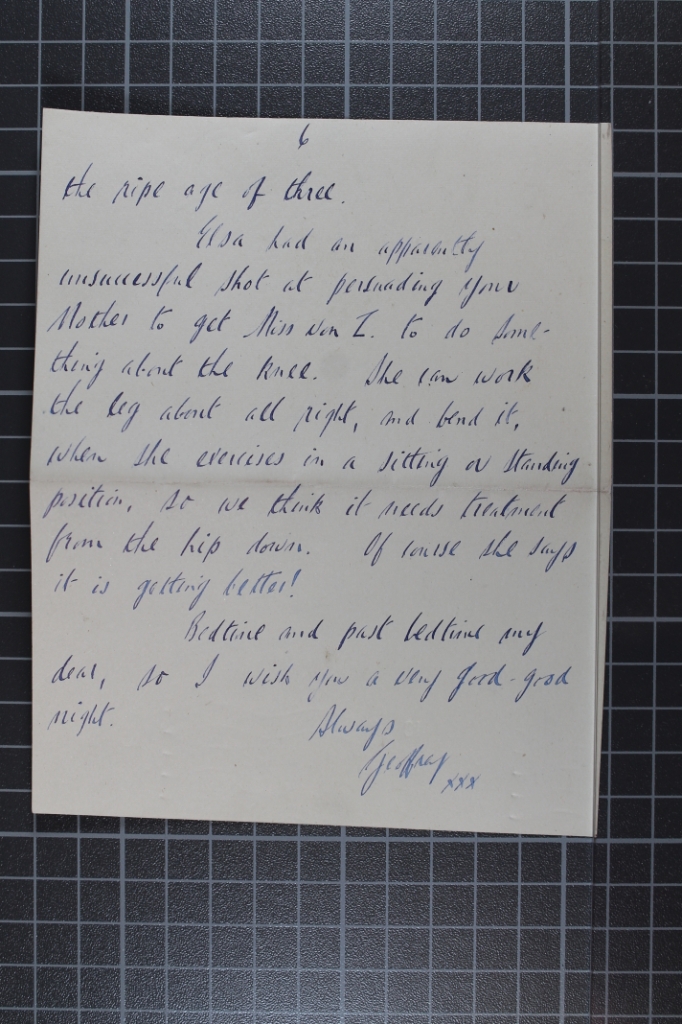 6
the ripe age of three.
Elsa had an apparently
unsuccessful shot at persuading your
Mother to get Miss von Z. to do some-
thing about the knee. She can work
the leg about all right, and bend it,
when she exercises in a sitting or standing
position, so we think it needs treatment
from the hip down. Of course she says
it is getting better!
Bedtime and past bedtime my
dear, so I wish you a very good-good
night.
Always
Geoffrey
xxx